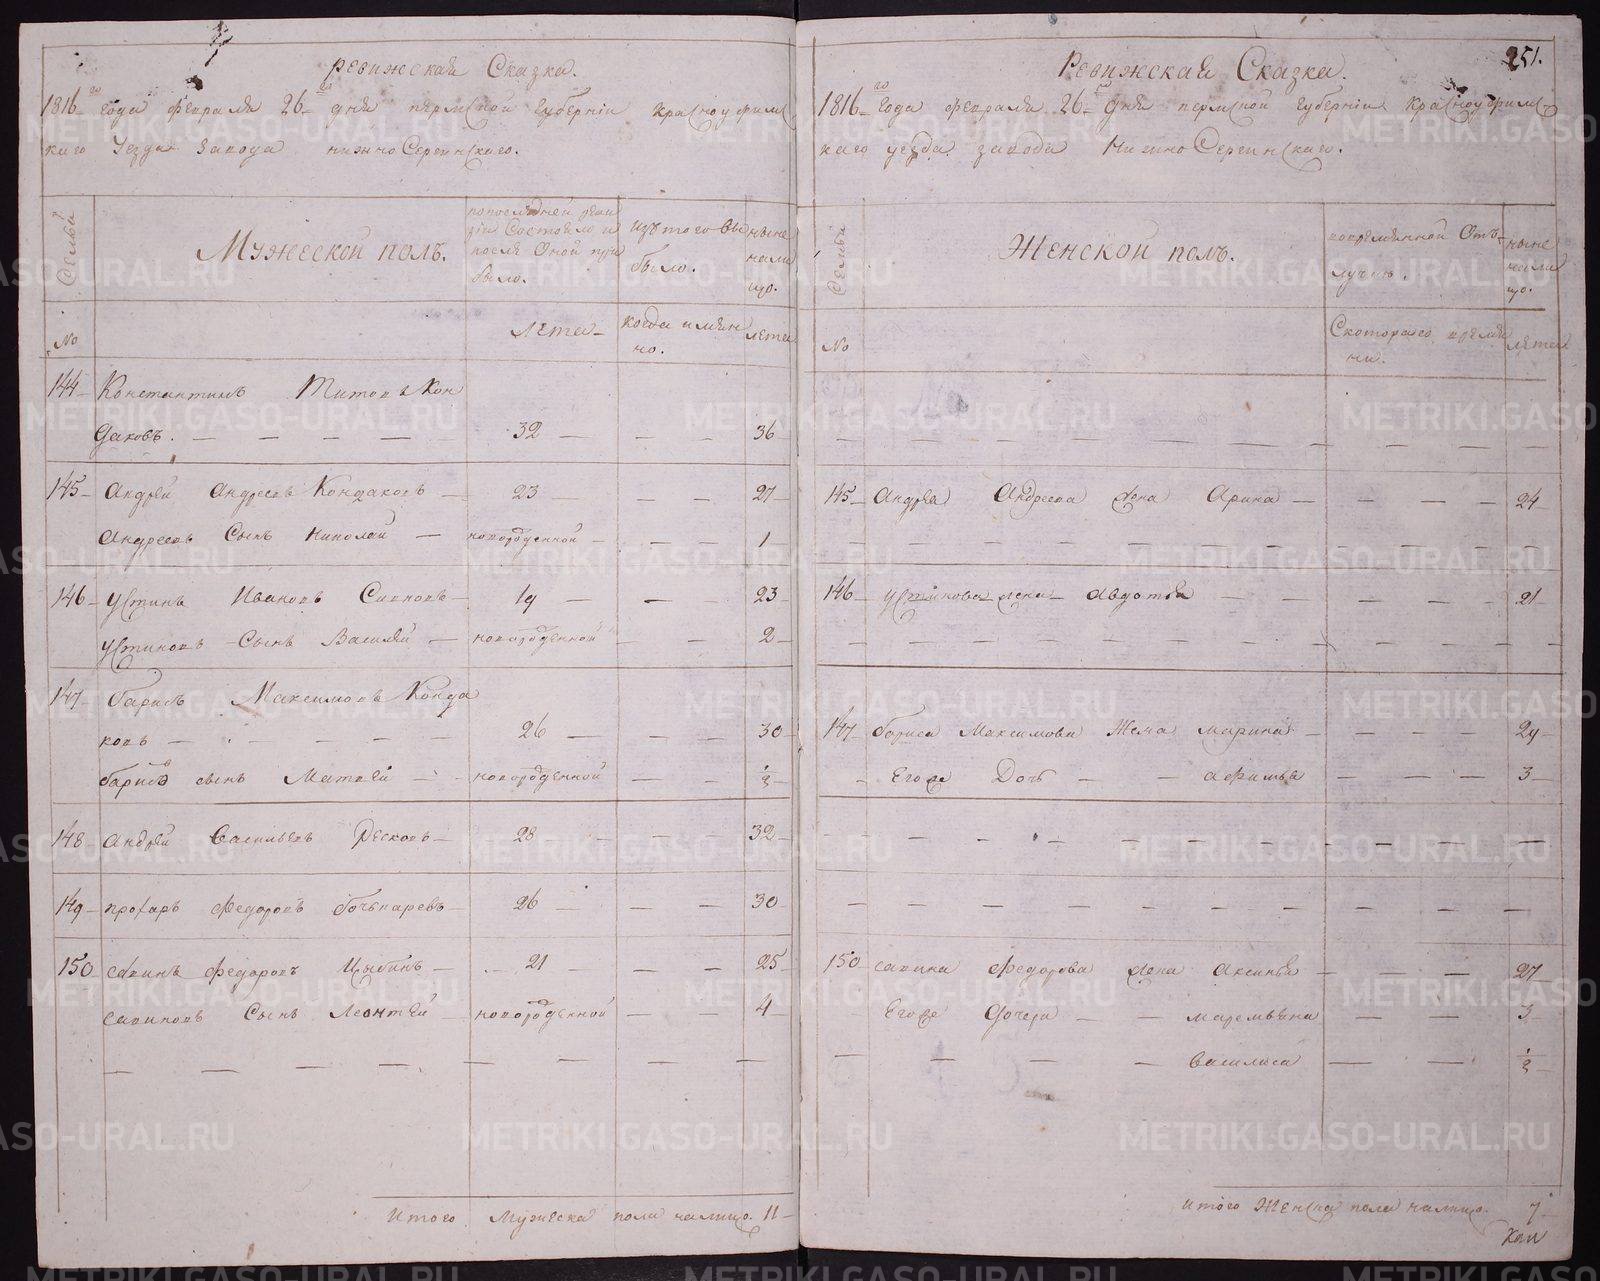 Ревижская Сказка.
1816го года февраля 26го дня пермской губернiи красноуфимс
каго уезда завода нижно Сергинскаго.
Семьи
Мужеской полъ.
по последней реви
зiи Состояло и
после Оной при
было.
изъ того вы
было.
ныне
нали
цо.
No
Лета
когда имян
но.
лета
144 Константинъ Титовъ Кон
даковъ. — — — — 32 — — — 36
145 Андрей Андреевъ Кондаковъ — 23 — — 27
Андреевъ Сынъ Николай — новорожденной — — — 1
146 Устинъ Ивановъ Савковъ — 19 — — 23
Устиновъ Сынъ Василей — новорожденной — — 2
147 барисъ Максимовъ Конда
ковъ — — — — 26 — — — 30
барисовъ сынъ Матвей — новорожденной — — ½
148 Андрей Васильевъ Песковъ — 28 — — 32
149 прохаръ Федоровъ бочкаревъ — 26 — — — 30
150 савинъ Федоровъ Цыбинъ — 21 — — — 25
савиновъ Сынъ Леонтей — новорожденной — — 4
Итого Мужеска пола налицо. 11
251.
Ревижская Сказка.
1816го года февраля 26го дня пермской губернiи красноуфимс
каго уезда завода нижно Сергинскаго.
Семьи
Женской полъ.
во временной Отъ
лучке.
ныне
нали
цо.
No
Скотораго время
ни.
лета
145 Андрея Андреева жена Арина — — — — 24
146 Устинова жена Авдотья — — — — 21
147 бориса Максимова Жена марина — — — 29
Егоже Дочь — — афимья — — — 3
150 савина Федорова жена Аксинья — — — 27
Егоже дочери — — маремьяна — — — 3
Василиса — — ½
Итого Женска пола налицо. 7